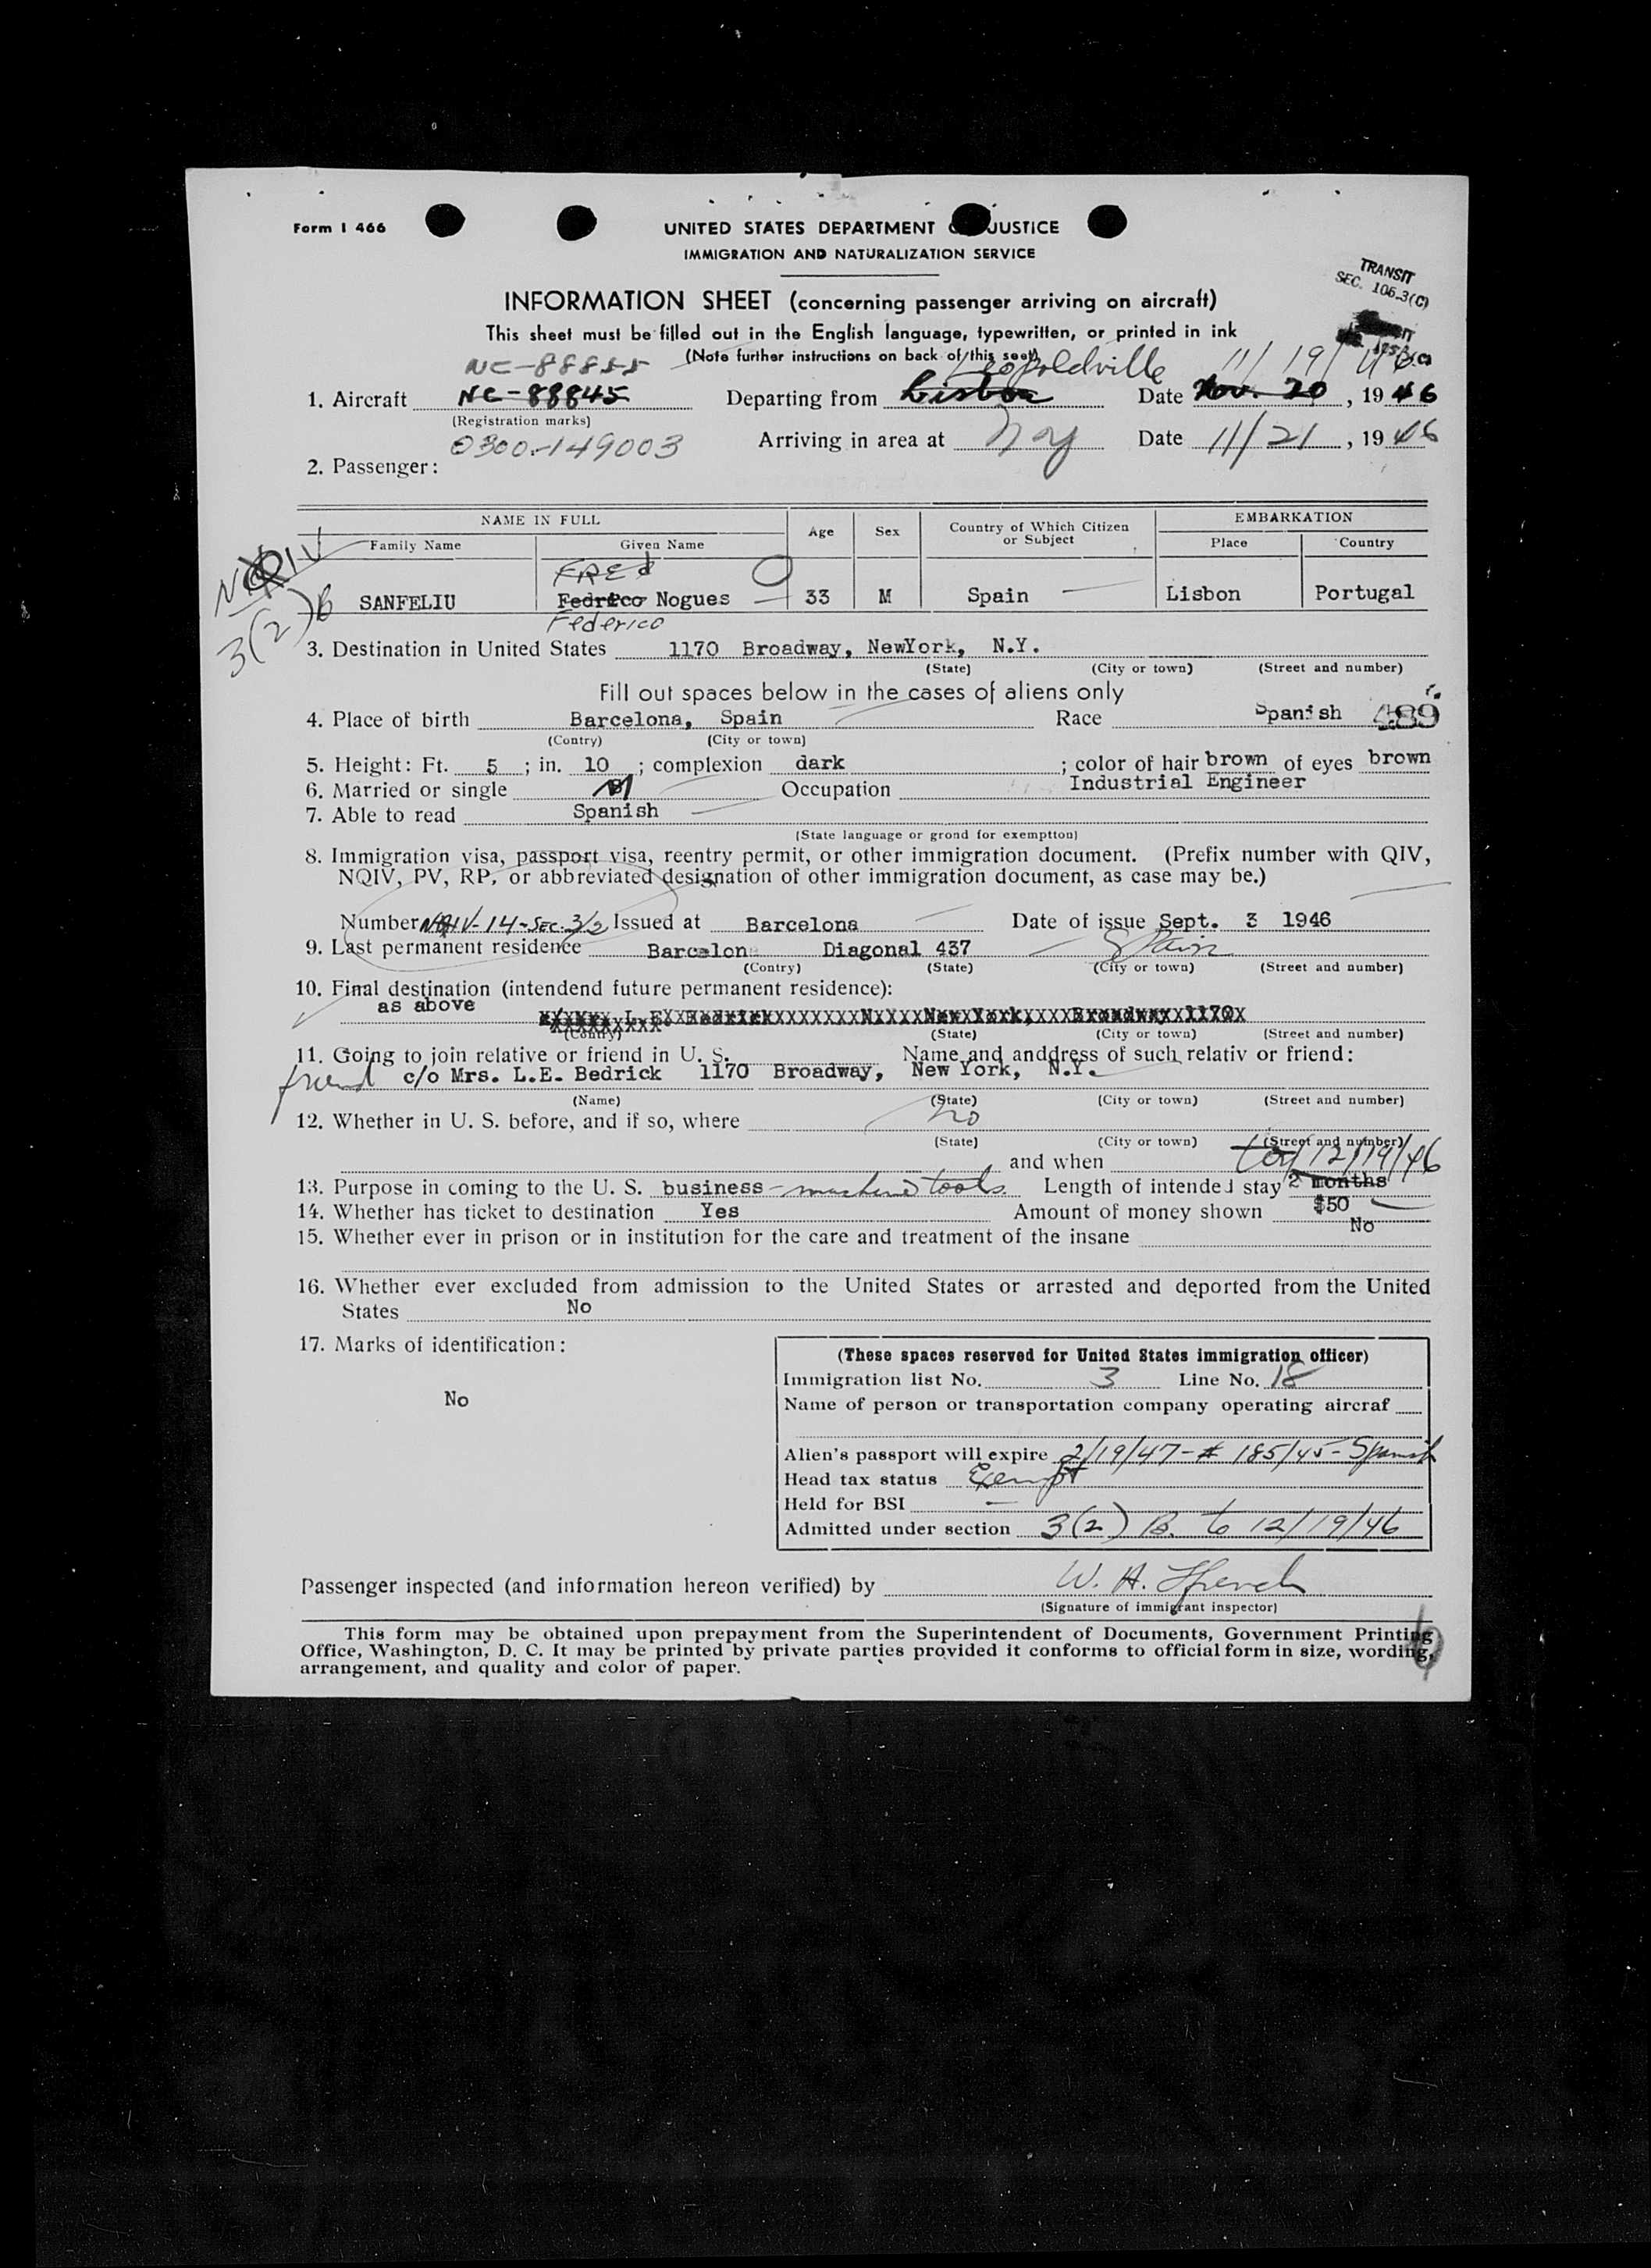 Form I 466
UNITED STATES DEPARTMENT JUSTICE
IMMIGRATION AND NATURALIZATION SERVICE
TRANSIT
SEC. 106.3(C)
INFORMATION SHEET (concerning passenger arriving on aircraft)
This sheet must be filled out in the English language, typewritten, or printed in ink
(Note further instructions on back of this seet)
NC-88855 Leopoldville 11/19/46
1. Aircraft NC-88845 Departing from Lisboa Date Nov. 20, 1946
(Registration marks)
0300-149003 Arriving in area at NY Date 11/21, 1946
2. Passenger:
NAME IN FULL Age Sex Country of Which Citizen or Subject EMBARKATION
Family Name Given Name Place Country
NQIV
3(2)B
FREd
SANFELIU Fedrico Nogues 33 M Spain Lisbon Portugal
Federico
3. Destination in United States 1170 Broadway, NewYork, N.Y.
(State) (City or town) (Street and number)
Fill out spaces below in the cases of aliens only
4. Place of birth Barcelona, Spain Race Spanish 489
(Contry) (City or town)
5. Height: Ft. 5 ; in. 10 ; complexion dark ; color of hair brown of eyes brown
6. Married or single M Occupation Industrial Engineer
7. Able to read Spanish
(State language or grond for exemptton)
8. Immigration visa, passport visa, reentry permit, or other immigration document. (Prefix number with QIV,
NQIV, PV, RP, or abbreviated designation of other immigration document, as case may be.)
Number NQIV-14-SEC.3/2 Issued at Barcelona Date of issue Sept. 3 1946
9. Last permanent residence Barcelona Diagonal 437 Spain
(Contry) (State) (City or town) (Street and number)
10. Final destination (intendend future permanent residence):
as above
(Contry) (State) (City or town) (Street and number)
11. Going to join relative or friend in U. S. Name and anddress of such relativ or friend:
friend c/o Mrs. L.E. Bedrick 1170 Broadway, New York, N.Y.
(Name) (State) (City or town) (Street and number)
12. Whether in U. S. before, and if so, where no
(State) (City or town) (Street and number)
and when to 12/19/46
13. Purpose in coming to the U. S. business - machine tools. Length of intended stay 2 months
14. Whether has ticket to destination Yes Amount of money shown $50
15. Whether ever in prison or in institution for the care and treatment of the insane No
16. Whether ever excluded from admission to the United States or arrested and deported from the United
States No
17. Marks of identification:
No
(These spaces reserved for United States immigration officer)
Immigration list No. 3 Line No. 18
Name of person or transportation company operating aircraf
Alien's passport will expire 2/19/47-# 185/45-Spanish
Head tax status Exempt
Held for BSI —
Admitted under section 3(2) B. to 12/19/46
Passenger inspected (and information hereon verified) by W. A. French
(Signature of immigrant inspector)
This form may be obtained upon prepayment from the Superintendent of Documents, Government Printing
Office, Washington, D. C. It may be printed by private parties provided it conforms to official form in size, wording,
arrangement, and quality and color of paper.